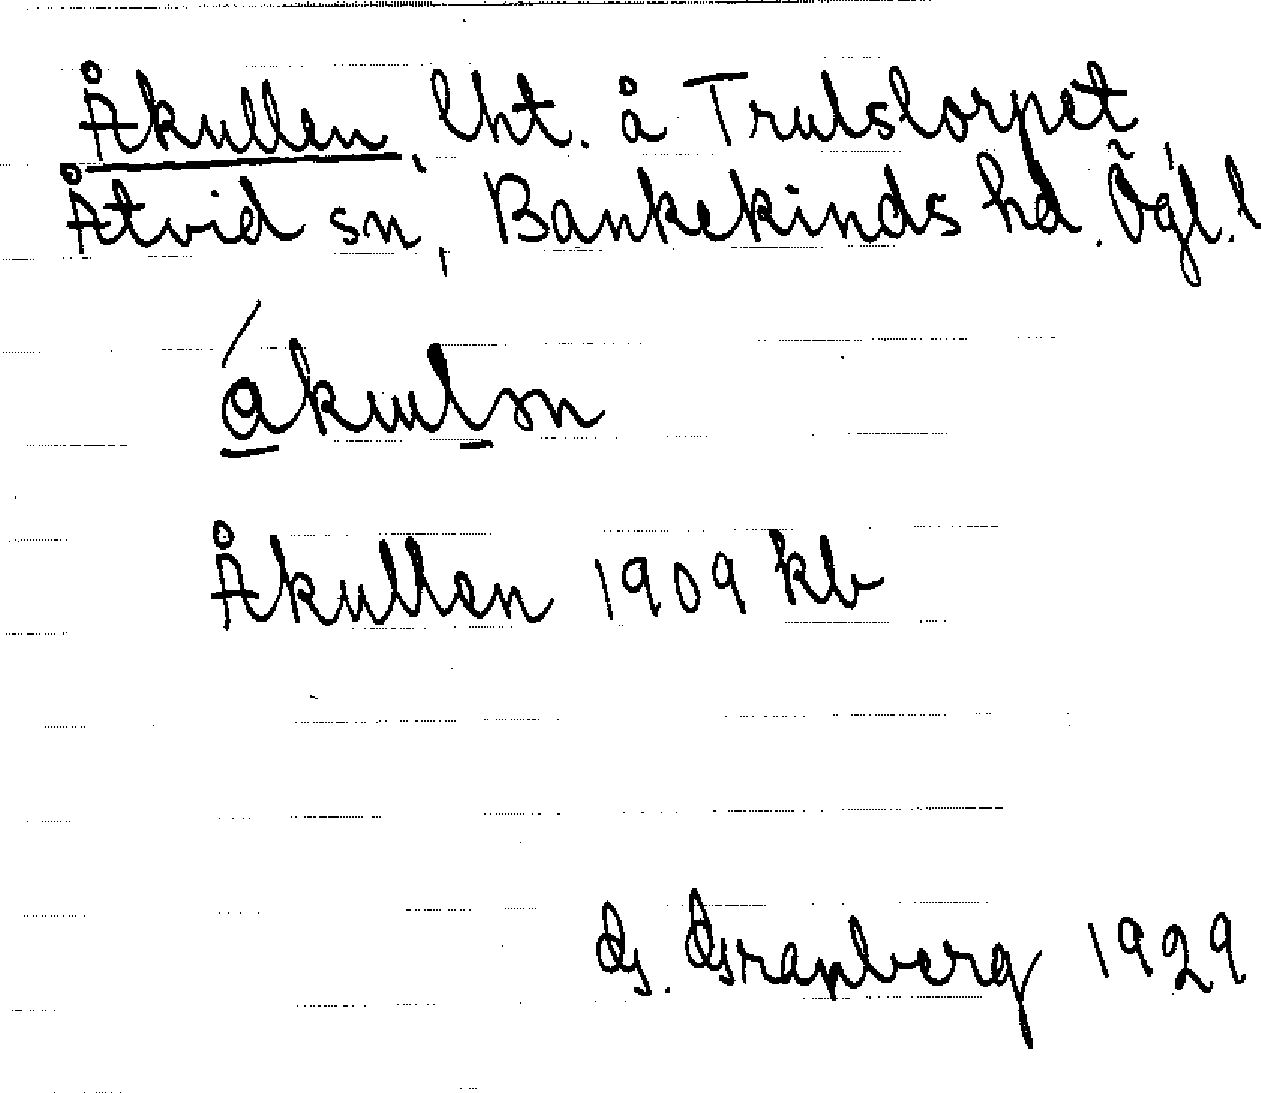 Åkullen, lht. å Trulstorpet
Åtvid sn, Bankekinds hd. Ögl. l
ákulən
Åkullen 1909 kb
G. Granberg 1929